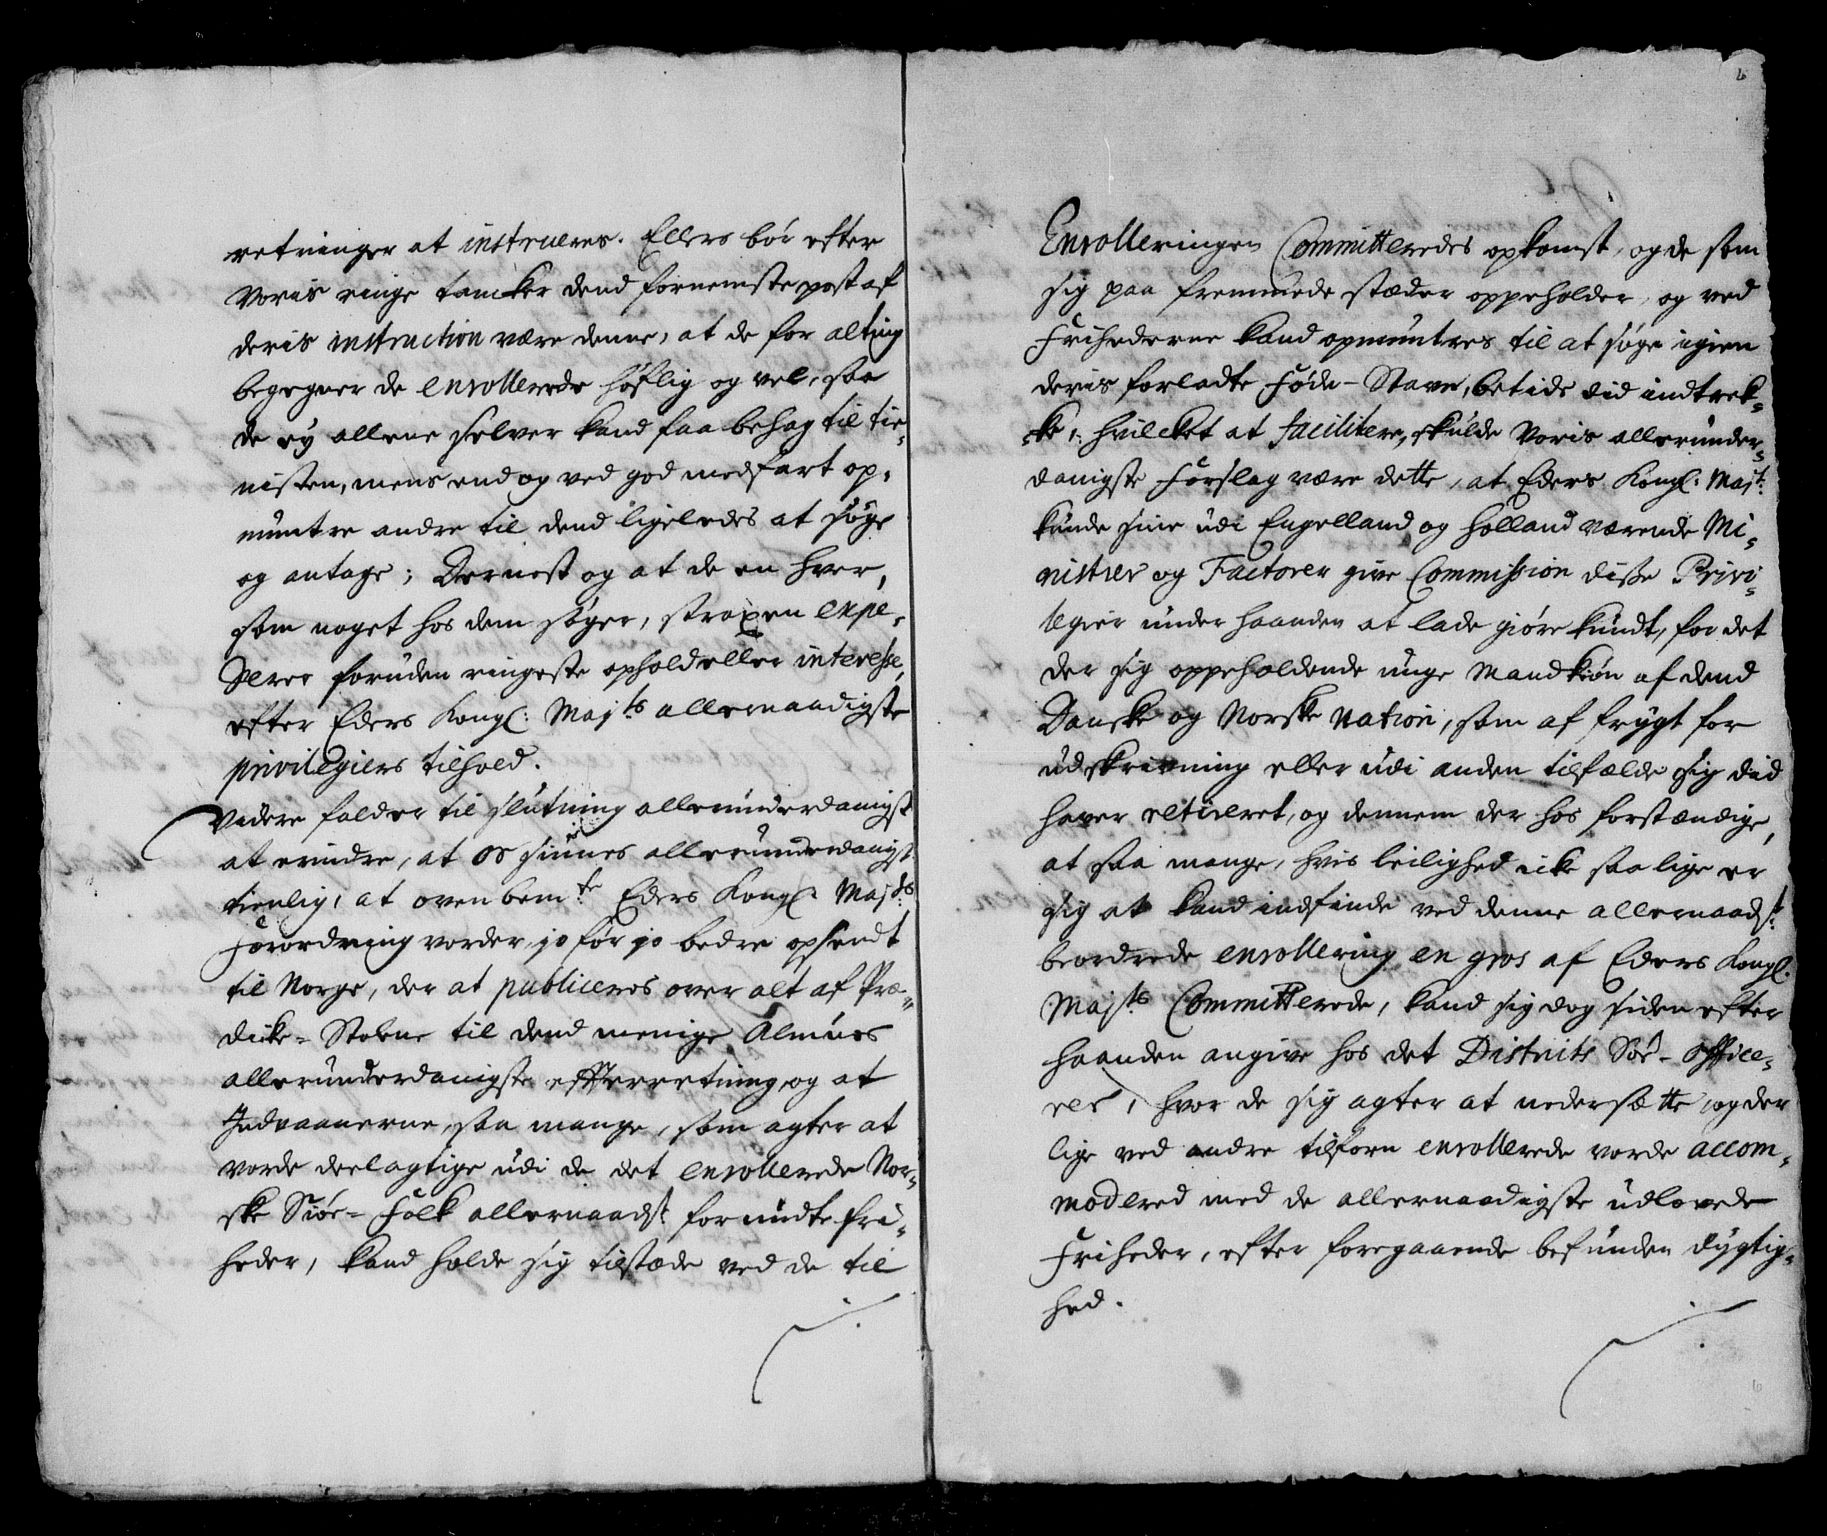 retninger at instrueres. Ellers bør efter
Voris ringe tancker dend fornemste post af
deris instruction være denne, at de for alting
begegner de enrollerede høflig og vel, saa
de ey allene selver kand faa behag til tie-
nisten, mens end og ved god medfart op-
muntre andre til dend ligeledes at søge
og antage; Dernest og at de en hver,
som noget hos dem søger, straxen expe-
derer foruden ringeste ophold eller interesse,
efter Eders Kongl: Majts allernaadigste
privilegiers tilhold.
Videre falder til slutning allerunderdanigst
at erindre, at os siunes allerunderdanigst
tienlig, at ovenbemte Eders Kongl: Majts
Forordning vorder jo før jo bedre opsendt
til Norge, der at publiceres over alt af Præ-
dicke-Stolene til dend menige Almues
allerunderdanigste effterretning, og at
Indvaanerne, saa mange, som agter at
vorde deelagtige udi de det enrollerede Nor-
ske Siøe-Folk allernaadst forundte fri-
heder, kand holde sig tilstæde ved de til
6
Enrolleringen Committeredes opkomst, og de som
sig paa fremmede stæder oppeholder, og ved
Frihederne kand opmuntres til at søge igien
deris forladte Føde-Stavn, betids did indtrek-
ke, hvilcket at facilitere, skulde Voris allerunder-
danigste Forslag være dette, at Eders Kongl: Majt:
kunde sine udi Engelland og Holland værende Mi-
nistrer og Factorer give Commission disse Privi-
legier under haanden at lade giøre kundt, for det
der sig oppeholdende unge Mandkiøn af dend
Danske og Norske Nation, som af frygt for
udskrivning eller udi anden tilfælde sig did
haver retireret, og dennem der hos forstændige,
at saa mange, hvis leilighed icke saa lige er
sig at kand indfinde ved denne allernaadst:
beordrede enrollering en gros af Eders Kongl.
Majts Committerede, kand sig dog siden efter
haanden angive hos det Districts Søe-Office-
rer, hvor de sig agter at nedersætte, og der
lige ved andre tilforn enrollerede vorde accom-
modered med de allernaadigste udlovede
Friheder, efter foregaaende befunden dygtig-
hed.